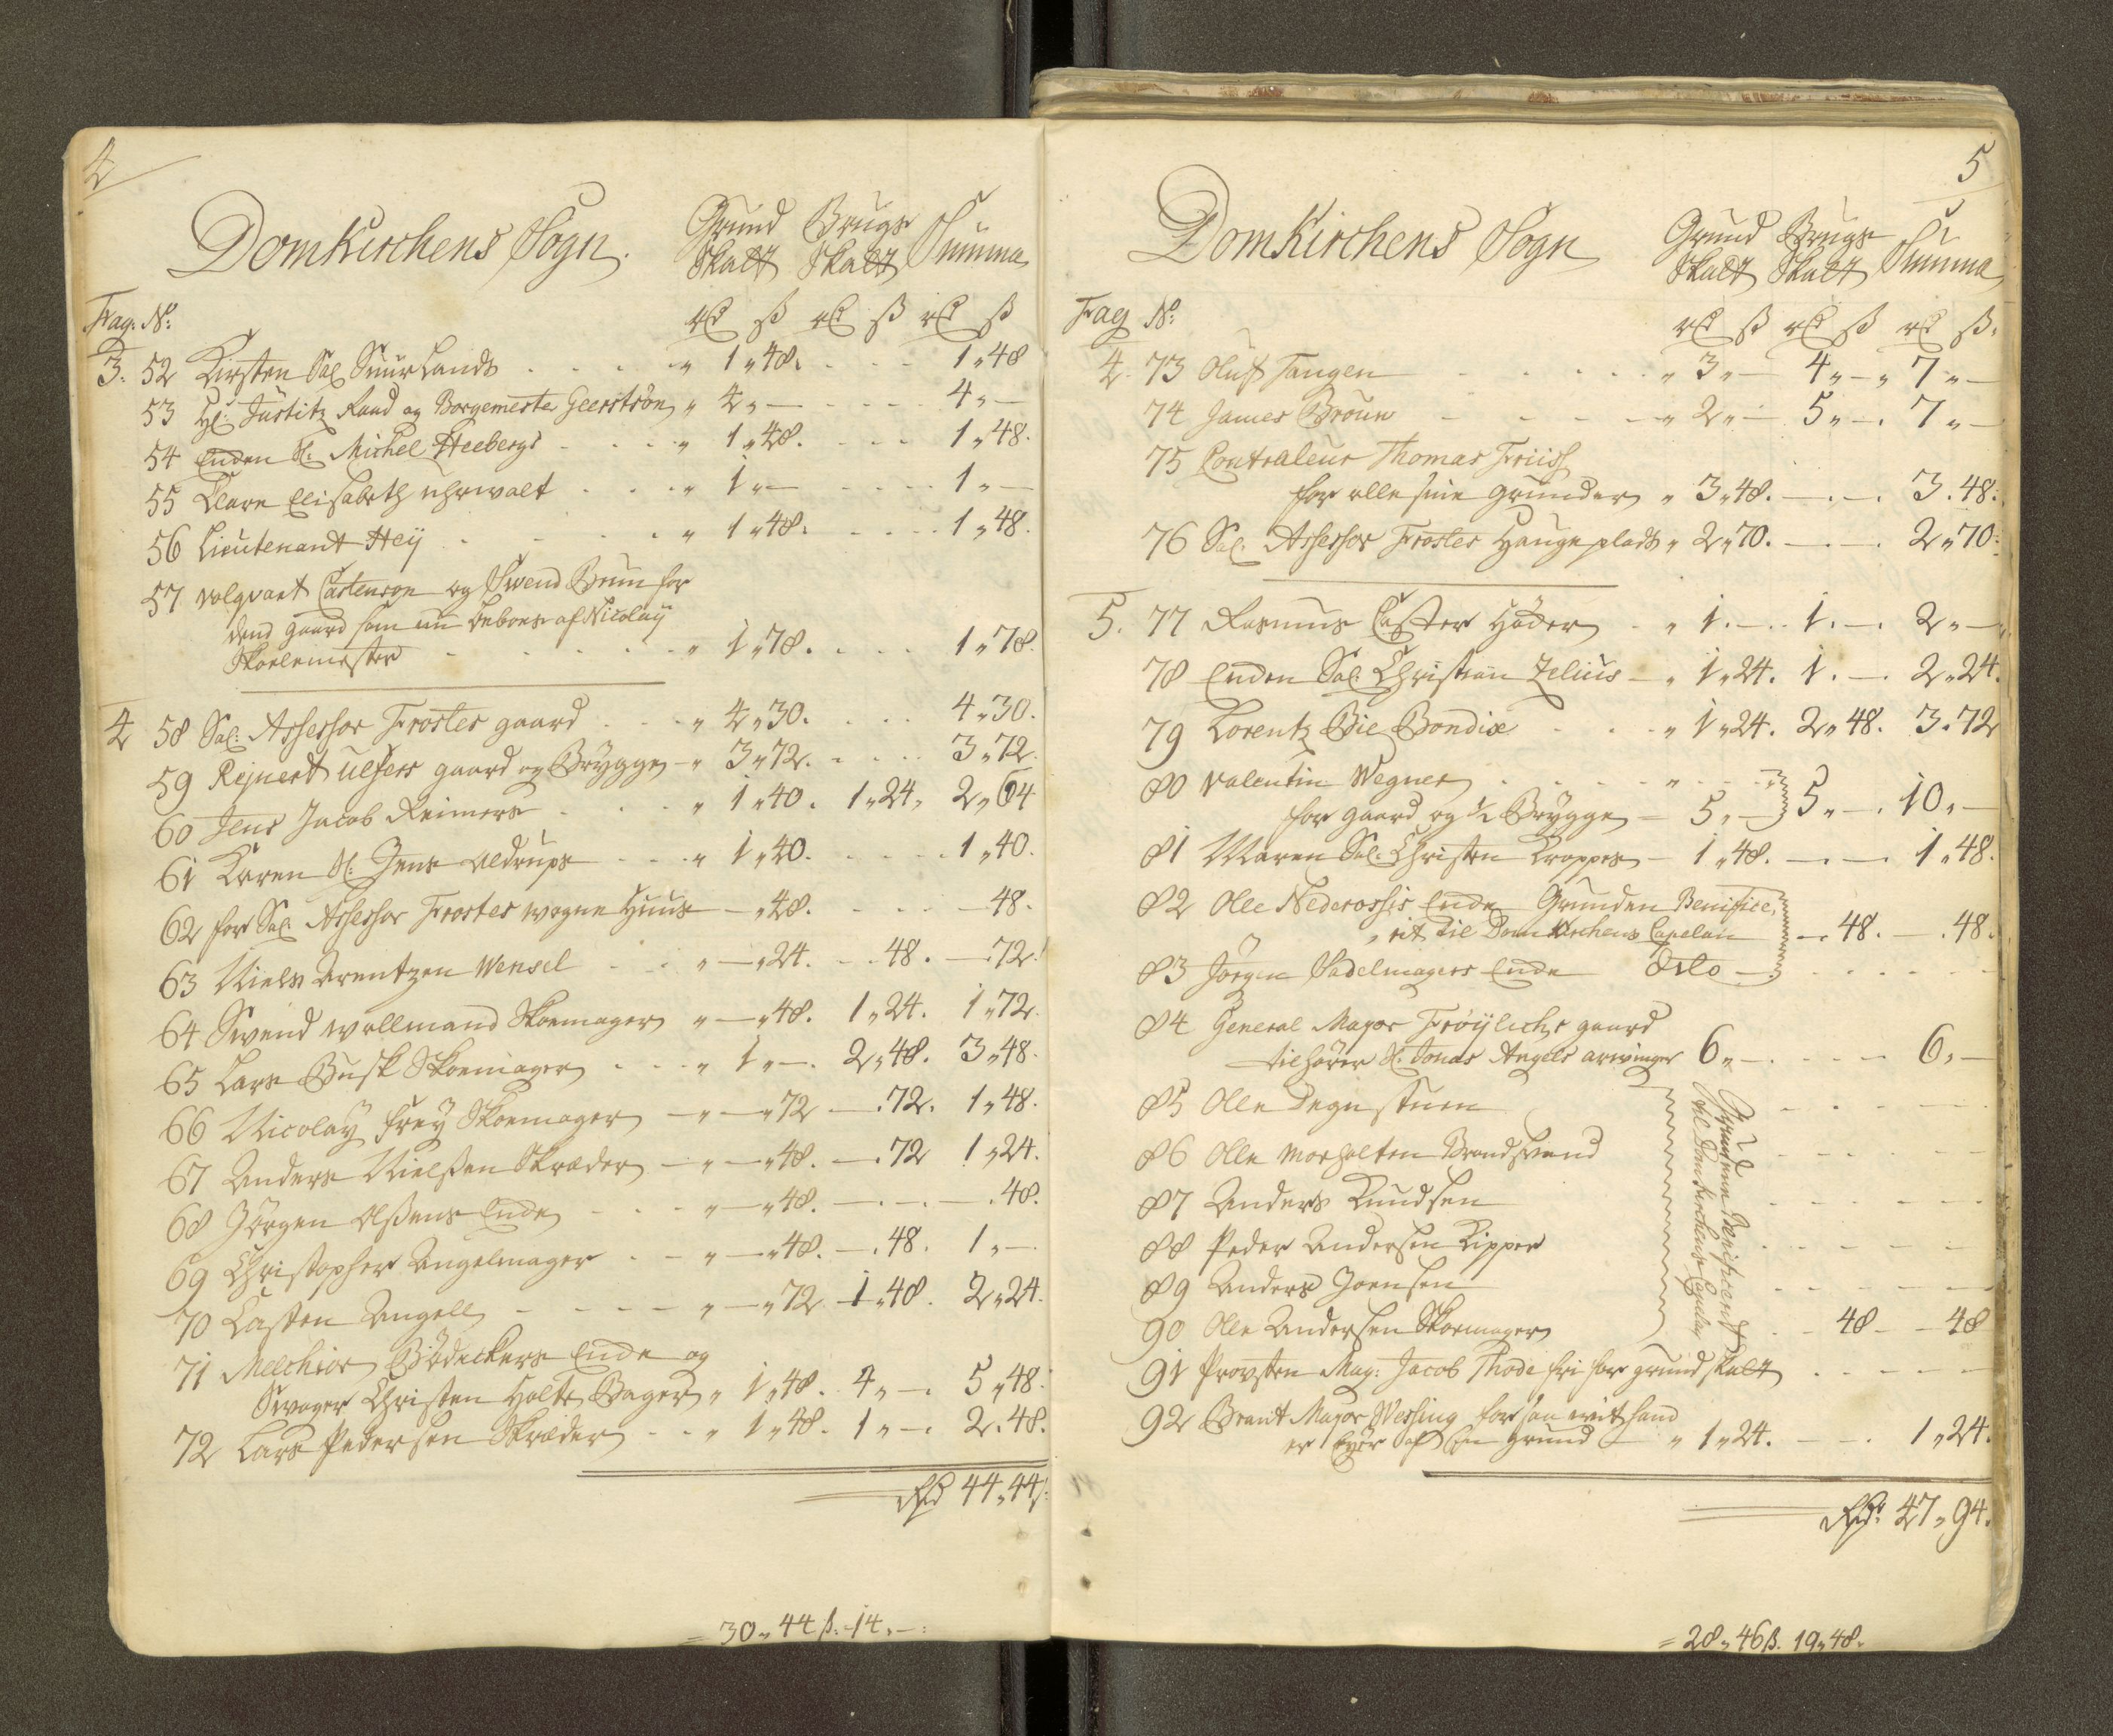 4
DomKirchens Sogn. Grund Brugs
Skatt Skatt Summa
Frag: No:
rd ß rd ß rd ß
3. 52 Kirsten Sal SuurLands " 1 " 48. 1 " 48
53 Hr: Justitz Raad og Borgemester Geertsøn " 4 " — 4 " —
54 Enden Sl: Michel Heebergs " 1 " 48. 1 " 48.
55 Clare Elisabeth uhrwalt " 1 " — 1 " —
56 Lieutenant Heÿ " 1 " 48. 1 " 48.
57 volqvart Castenson og Swend Brun for
dend gaard som nu beboes af Nicolaÿ
Skoelemester " 1 " 78. 1 " 78.
4 58 Sal: Assessor Frostes gaard " 4 " 30. 4 " 30.
59 Rejnert ulfsers gaard og Brÿgge " 3 " 72. 3 " 72.
60 Jens Jacob Reimers " 1 " 40. 1 " 24. 2 " 64
61 Karen Sl: Jens Aldrups " 1 " 40. 1 " 40.
62 for Sal: Assessor Frostes wogne Huus — " 48. — 48.
63 Niels Arentzen Wensel " — " 24. 48. — 72.
64 Swend wollmand Skoemager " — " 48. 1 " 24. 1 " 72.
65 Lars Busk Skoemager " 1 " — 2 " 48. 3 " 48.
66 Nicolaÿ Freÿ Skoemager " — " 72 — . 72. 1 " 48.
67 Anders Nielßen Skræder " — " 48. — . 72 1 " 24.
68 Jørgen Olßens Ende " — " 48. — . — . 48.
69 Christopher Angelmager " — " 48. — . 48. 1 " —
70 Casten Angell " — " 72 1 " 48. 2 " 24.
71 Melchior Bödickers Ende og
Swoger Christen Holte Bager " 1 " 48. 4 " — 5 " 48.
72 Lars Pedersen Skræder " 1 " 48. 1 " — 2. 48.
Rd 44 " 44 ß:
= 30 " 44 ß. 14. — :
5
DomKirchens Sogn Grund Brugs
Skatt Skatt Summa
Frag No:
rd ß rd ß rd ß.
4. 73 Oluf Tangen " 3 " — 4 " — " 7 " —
74 James Broun " 2 " — 5 " — . 7 " —
75 Contraleur Thomas Friis
for alle sine grunder " 3 " 48. — . — . 3. 48.
76 Sal: Assessor Frostes Hauge plads " 2 " 70. — . — . 2 " 70.
5. 77 Rasmus Caster Høder " 1. — . 1. — . 2 " —
78 Enden Sal: Christian Zelius " 1 " 24. 1. — . 2 " 24.
79 Lorentz Bie Bondix " 1 " 24. 2 " 48. 3. 72
80 Valentin Wegner "
for gaard og ½ Brÿgge — 5 " — 5 " — . 10 " —
81 Maren Sal: Christen Kroppes — 1 " 48. — . — . 1 " 48.
82 Olle Nederosses Ende Grunden Benifice,
rit til Dom Kirchens Capelan — . 48. — . 48.
83 Jørgen Sadelmagers Ende Dito —
84 General Major Frøÿlichs gaard
tilhører Sl: Jonas Angels arwinger 6 " — . 6 " —
85 Olle Degnstuen
86 Olle Morholten Brandswend
87 Anders Knudsen
88 Peder Andersen Kipper
89 Anders Joensen
90 Olle Andersen Skoemager 48 — 48
Grundene Benificeret
til Dom Kirchens Capelan
91 Prowsten Mag: Jacob Thode fri for grundskatt
92 Brant Major Wessing for saa wit hand
er Eÿer af En grund " 1 " 24. — . 1 " 24.
Rd: 47 " 94.
= 28 " 46 ß. 19 " 48.